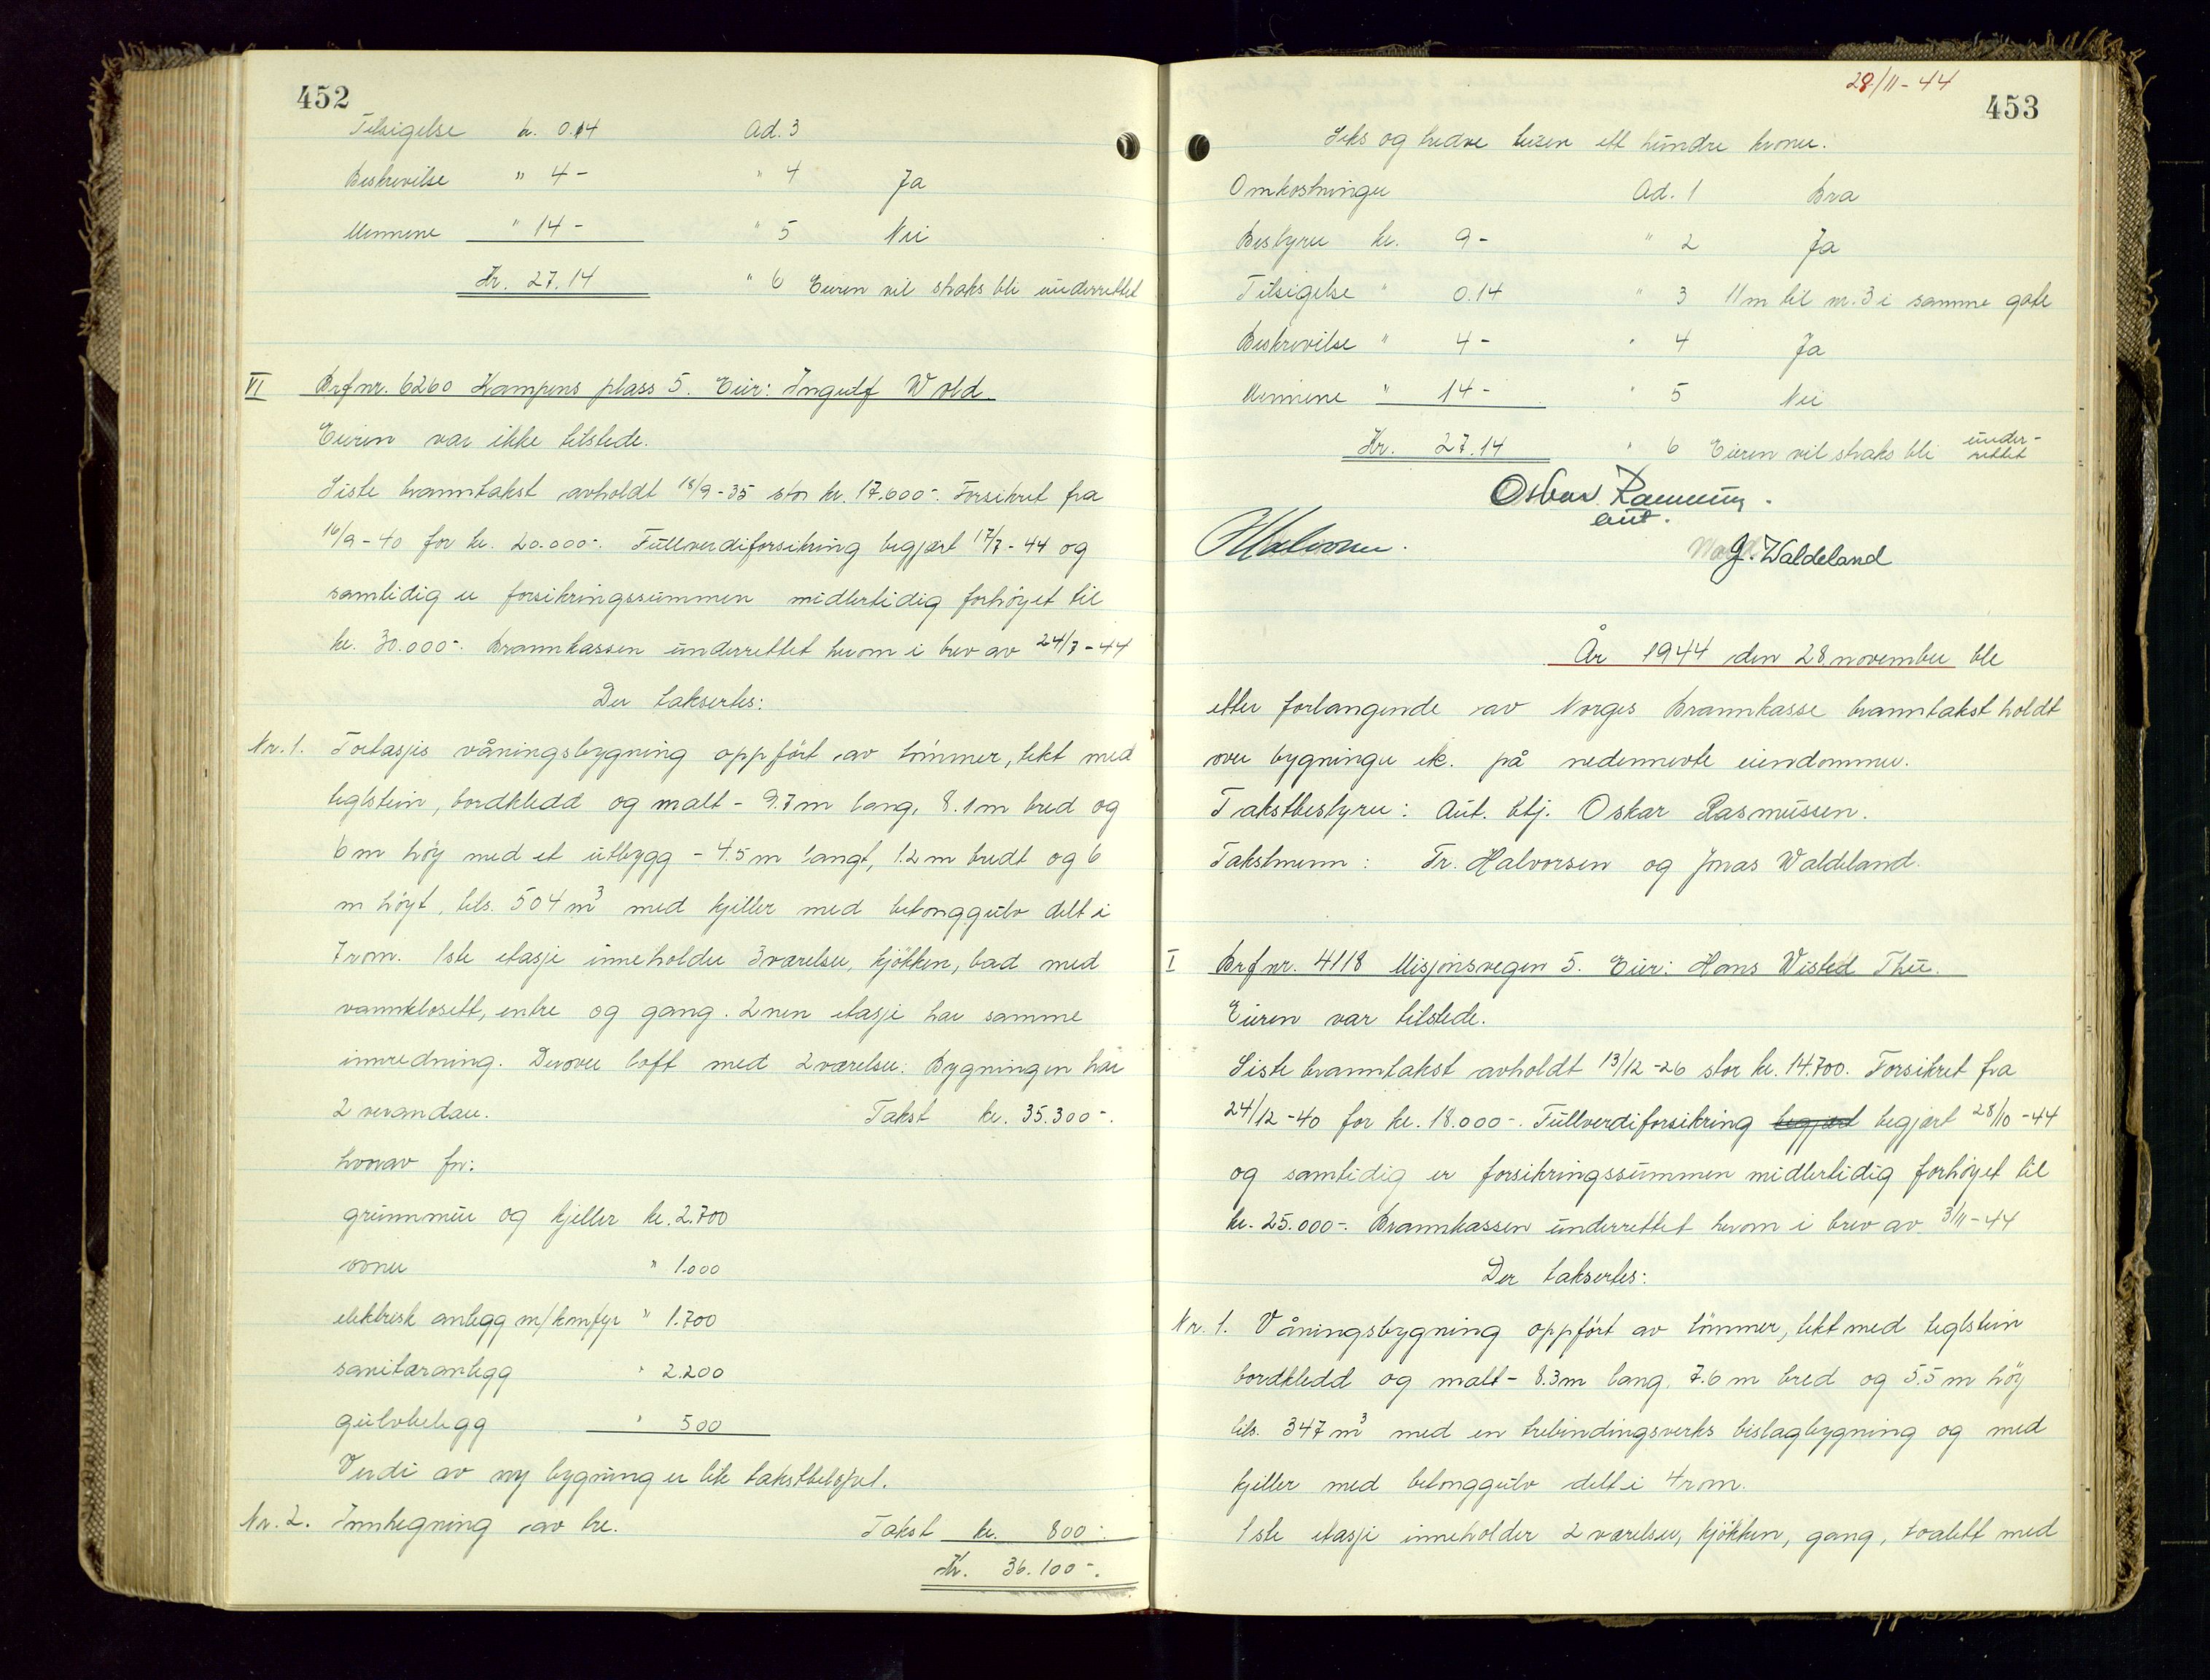 452
Tilsigelse kr. 0.14 Ad. 3
Beskrivelse " 4- " 4 Ja
Mennene " 14- " 5 Nei
Kr. 27.14 " 6 Eieren vil straks bli underrettet
VI Brfnr. 6260 Kampens plass 5. Eier: Ingulf Wold.
Eieren var ikke tilstede.
Siste branntakst avholdt 18/9-35 stor kr. 17.600-. Forsikret fra
16/9-40 for kr. 20.000-. Fullverdiforsikring begjært 17/7-44 og
samtidig er forsikringssummen midlertidig forhöyet til
kr. 30.000-. Brannkassen underrettet herom i brev av 24/7-44
Der taksertes:
Nr. 1. Toetasjes våningsbygning oppfört av tömmer, tekt med
teglstein, bordkledd og malt - 9.7 m lang, 8.1 m bred og
6 m höy med et utbygg - 4.5 m langt, 1.2 m bredt og 6
m höyt, tils. 504 m3 med kjeller med betonggulv delt i
7 rom. 1ste etasje inneholder 3 værelser, kjökken, bad med
vannklosett, entre og gang. 2nen etasje har samme
innredning. Derover loft med 2 værelser. Bygningen har
2 verandaer. Takst kr. 35.300-.
hvorav for:
grunnmur og kjeller kr. 2.700
ovner " 1.000
elektrisk anlegg m/komfyr " 1.700
sanitæranlegg " 2.200
gulvbelegg " 500
Verdi av ny bygning er lik takstbelöpet.
Nr. 2. Innhegning av tre. Takst kr. 800-.
Kr. 36.100-.
28/11-44
453
Seks og tredve tusen ett hundre kroner.
Omkostninger Ad. 1 Bra
Bestyrer kr. 9- " 2 Ja
Tilsigelse " 0.14 " 3 11 m til nr. 3 i samme gate
Beskrivelse " 4- " 4 Ja
Mennene " 14- " 5 Nei
Kr. 27.14 " 6 Eieren vil straks bli under-
rettet
Oskar Rasmussen.
aut.
Halvorsen.
J. Waldeland
År 1944 den 28 november ble
etter forlangende av Norges Brannkasse branntakst holdt
over bygninger etc. på nedennevnte eiendommer.
Takstbestyrer: Aut. btj. Oskar Rasmussen.
Takstmenn: Fr. Halvorsen og Jonas Waldeland.
I Brfnr. 4118 Misjonsvegen 5. Eier: Hans Wisted Thu.
Eieren var tilstede.
Siste branntakst avholdt 13/12-26 stor kr. 14.700. Forsikret fra
24/12-40 for kr. 18.000-. Fullverdiforsikring begjært begjært 28/10-44
og samtidig er forsikringssummen midlertidig forhöyet til
kr. 25.000-. Brannkassen underrettet herom i brev av 3/11-44
Der taksertes:
Nr. 1. Våningsbygning oppfört av tömmer, tekt med teglstein
bordkledd og malt - 8.3 m lang, 7.6 m bred og 5.5 m höy
tils. 347 m3 med en trebindingsverks bislagbygning og med
kjeller med betonggulv delt i 4 rom.
1ste etasje inneholder 2 værelser, kjökken, gang, toalett med